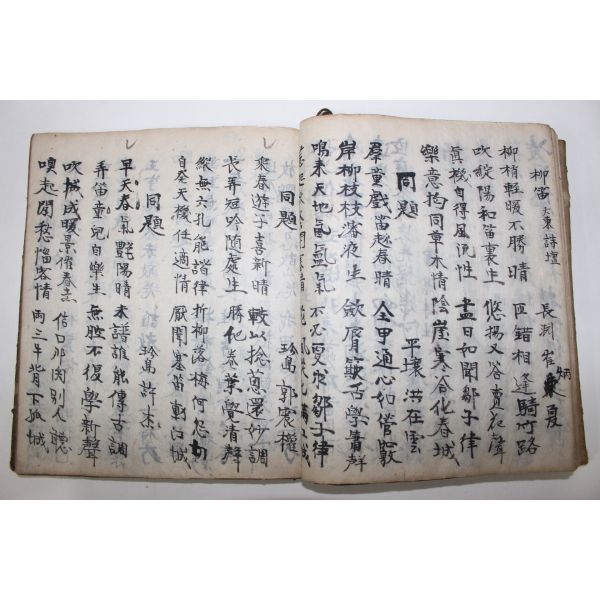 柳笛 大東詩壇 長渕 崔東夏
柳梢輕暖不勝晴 匝錯相逢騎竹路
吹縱陽和笛裏生 悠揚又答賣花聲
眞機自得風流性 盡日如聞鄒子律
樂意均同草木情 陰崖寒谷化春城
同題 平壤 洪在雲
羣童戱當趁春晴 全甲通心如管數
岸柳枝枝落夜生 歛脣簸舌學賣聲
鳴來天地氤氳氣 不必更求鄒子律
同題 珍島 郭震權
來春遊子喜新晴 數以捻葱還妙調
長弄短吟隨處生 勝他卷葉學淸聲
縱無六孔能諧律 折柳落梅何怨切
自發天機任適情 厭聞塞笛動江城
同題 珍島 許
早天春氣艶陽晴 未譜誰能傳古調
弄笛童兒自樂生 無腔不復學新聲
吹撼成暖景催春去 信口那関別人聽
喚起閑愁惱客情 両三午背下孤城